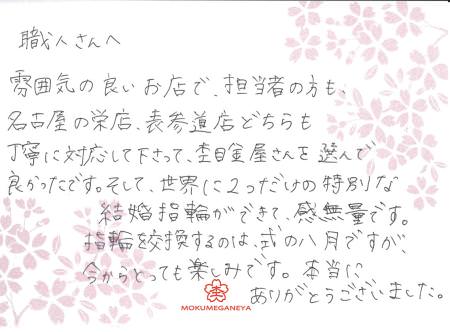 職人さんへ
雰囲気の良いお店で、担当者の方も、
名古屋の栄店、表参道店どちらも
丁寧に対応して下さって、杢目金屋さんを選んで
良かったです。そして、世界に2つだけの特別な
結婚指輪ができて、感無量です。
指輪を交換するのは、式の八月ですが、
今からとっても楽しみです。本当に
ありがとうございました。
MOKUMEGANEYA